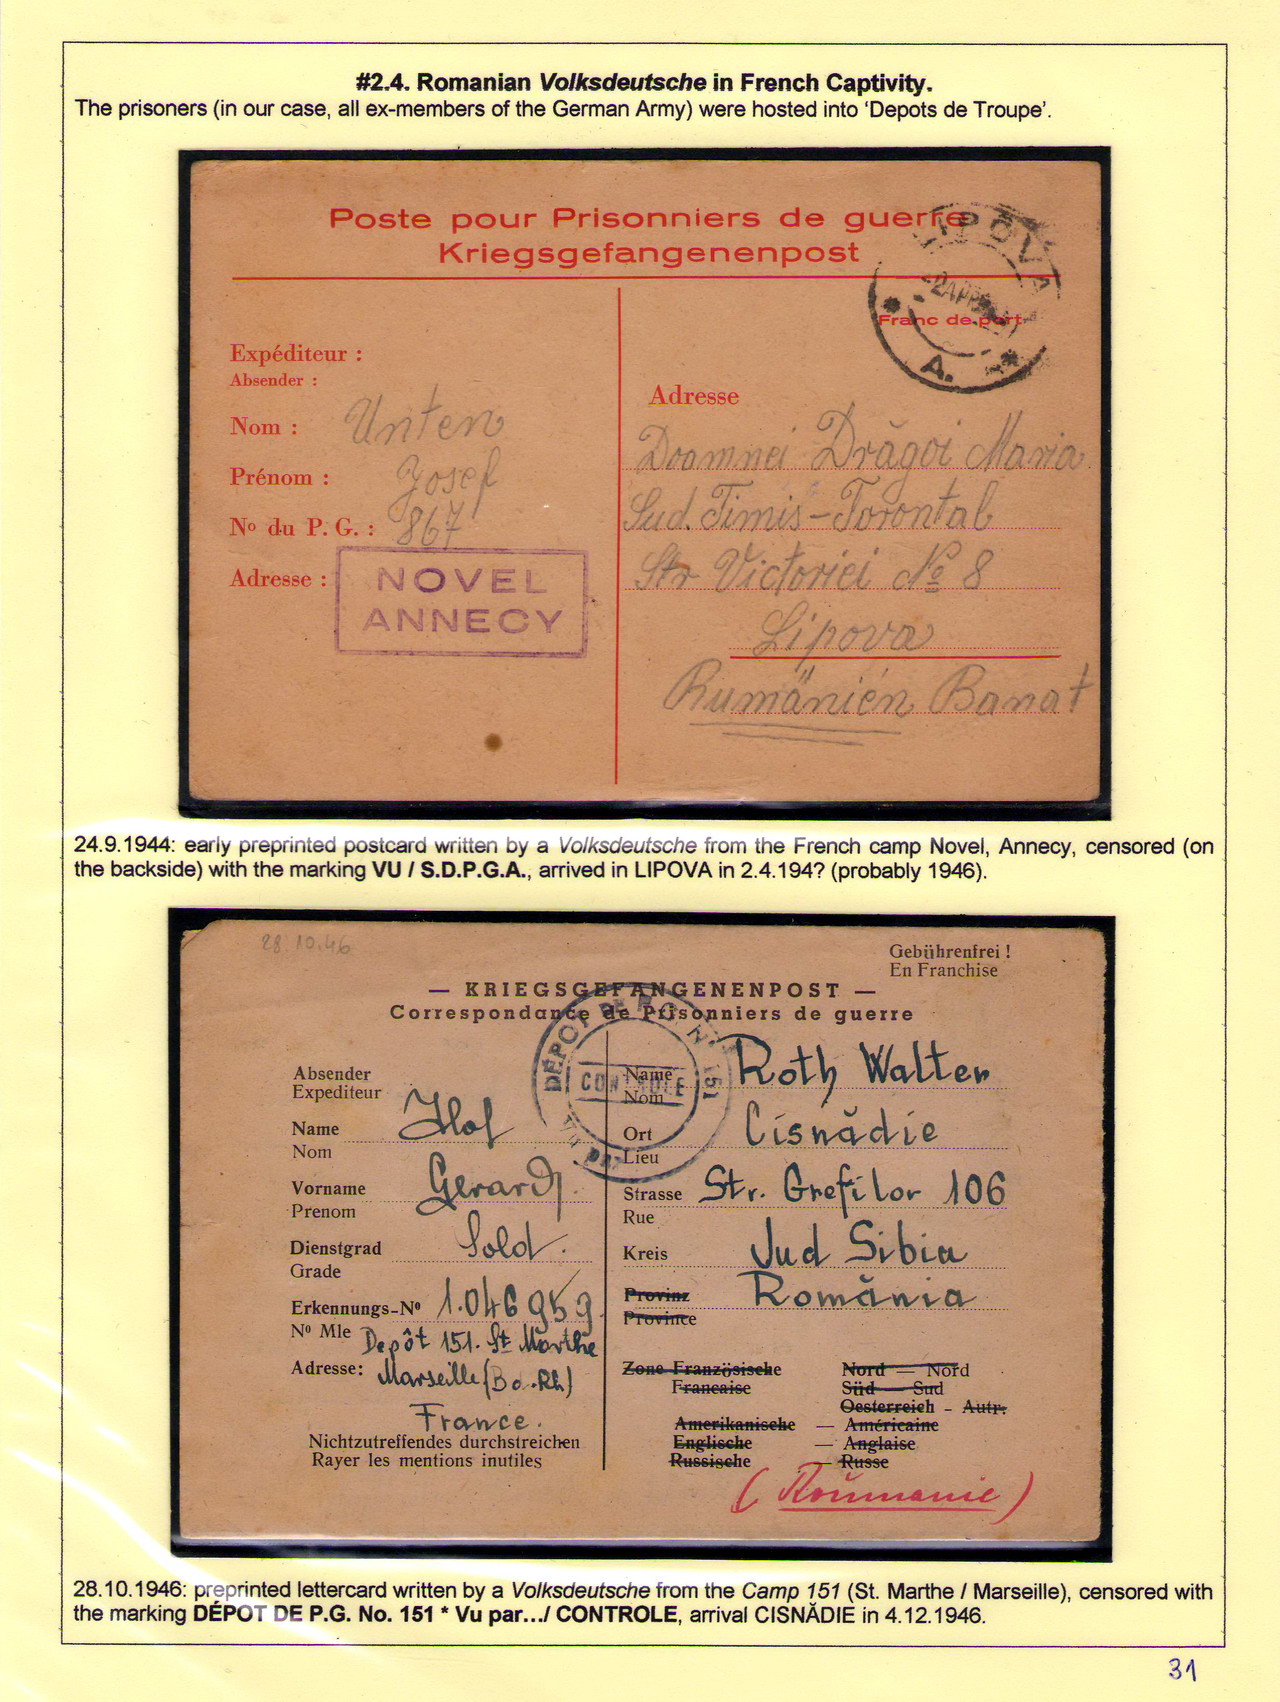 #2.4. Romanian Volksdeutsche in French Captivity.
The prisoners (in our case, all ex-members of the German Army) were hosted into ‘Depots de Troupe’.
Poste pour Prisonniers de guerre
Kriegsgefangenenpost
LIPOVA
Franc de port
A.
Expéditeur :
Absender :
Nom : Unten
Prénom : Josef
No du P. G. : 867
Adresse :
NOVEL
ANNECY
Adresse
Doamnei Drăgoi Maria
Jud. Timis-Torontal
Str Victoriei No 8
Lipova
Rumänien Banat
24.9.1944: early preprinted postcard written by a Volksdeutsche from the French camp Novel, Annecy, censored (on
the backside) with the marking VU / S.D.P.G.A., arrived in LIPOVA in 2.4.194? (probably 1946).
28.10.46
Gebührenfrei !
En Franchise
— KRIEGSGEFANGENENPOST —
Correspondance de Prisonniers de guerre
DÉPOT DE P.G. No 151
CONTROLE
Vu par
Absender
Expediteur
Name Hof
Nom
Vorname Gerard
Prenom
Dienstgrad Sold.
Grade
Erkennungs-No 1.046959
No Mle Depôt 151. St Marthe
Adresse: Marseille (B d. Rh)
France.
Nichtzutreffendes durchstreichen
Rayer les mentions inutiles
Name Roth Walter
Nom
Ort Cisnădie
Lieu
Strasse Str. Grefilor 106
Rue
Kreis Jud Sibia
Provinz România
Province
Zone Französische Nord — Nord
Francaise Süd — Sud
Oesterreich - Autr.
Amerikanische — Américaine
Englische — Anglaise
Russische — Russe
(Roumanie)
28.10.1946: preprinted lettercard written by a Volksdeutsche from the Camp 151 (St. Marthe / Marseille), censored with
the marking DÉPOT DE P.G. No. 151 * Vu par.../ CONTROLE, arrival CISNĂDIE in 4.12.1946.
31